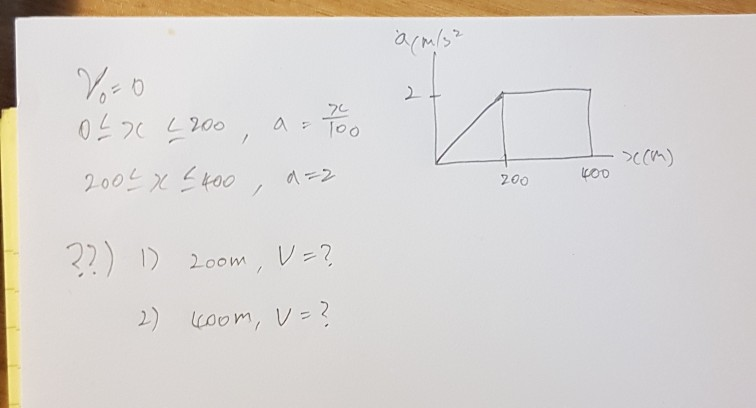 V₀ = 0
0 ≤ x ≤ 200, a = x/100
200 ≤ x ≤ 400, a = 2
??) 1) 200m, V = ?
2) 400m, V = ?
a(m/s²
2
200
400
x(m)